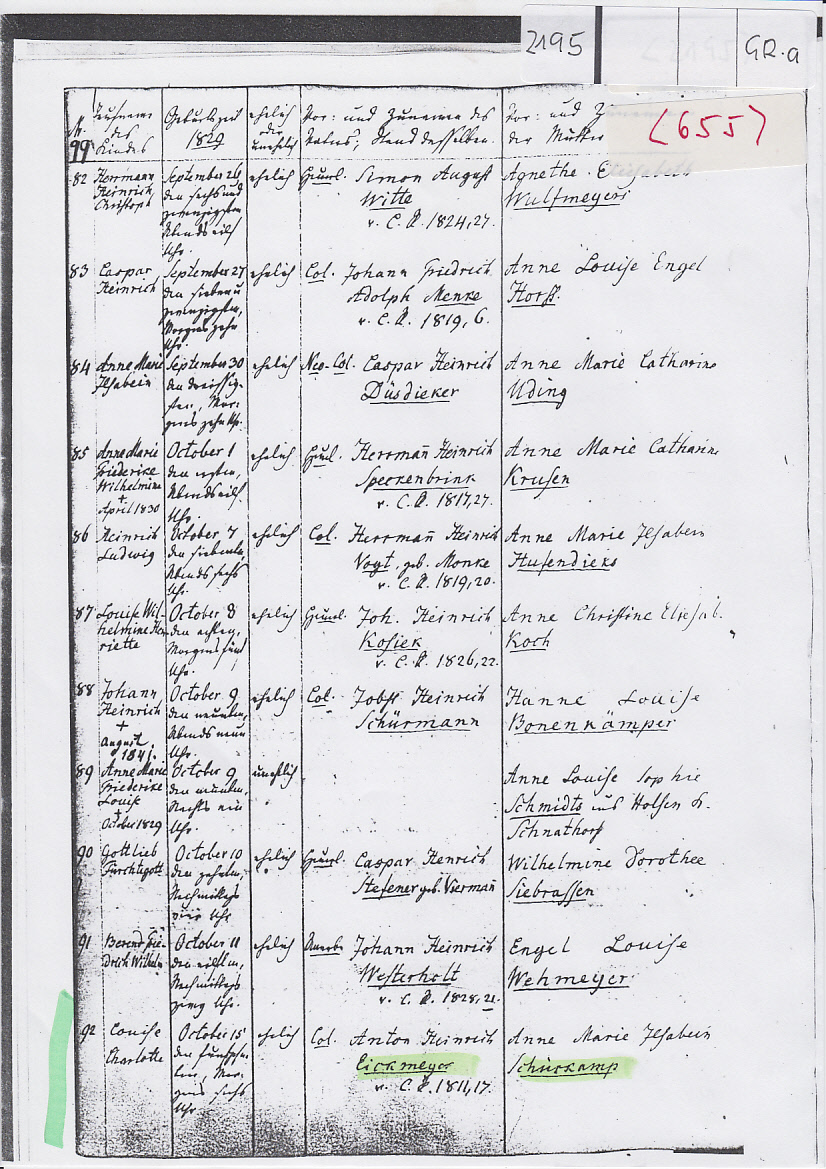 2195
GR.a
(655)
Nr. Rufname des Kindes Geburtszeit 1829 ehelich oder unehelich Vor: und Zuname des Vaters, Stand desselben. Vor: und Z der Mutter
99
82 Herrmann Heinrich Christoph September 26, den sechs und zwanzigsten Abends eilf Uhr. ehelich Simon August Witte v. C. A. 1824,27. Agnethe Elisabeth Wulfmeyers
83 Caspar Heinrich September 27 den sieben u zwanzigsten, Morgens zehn Uhr. ehelich Col. Johann Friedrich Adolph Menke v. C. A. 1819, 6. Anne Louise Engel Horst.
84 Anne Marie Ilsabein September 30 den dreissigsten, Morgens zehn Uhr. ehelich Neo-Col. Caspar Heinrich Düsdieker Anne Marie Catharine Uding
85 Anne Marie Friederike Wilhelmine + April 1830 October 1 den ersten, Abends eilf Uhr. ehelich Herrmann Heinrich Speckenbrink v. C. A. 1817,27. Anne Marie Catharine Krusen
86 Heinrich Ludwig October 7 den siebenten, Abends sechs Uhr. ehelich Col. Herrmann Heinrich Vogt, geb. Monke v. C. A. 1819,20. Anne Marie Ilsabein Hufendieks
87 Louise Wilhelmine Henriette October 8 den achten, Morgens fünf Uhr. ehelich Joh. Heinrich Kosiek v. C. A. 1826,22. Anne Christine Eliesab. Koch
88 Johann Heinrich + August 1841. October 9 den neunten, Abends neun Uhr. ehelich Col. Jobst Heinrich Schürmann Hanne Louise Bonenkämper
89 Anne Marie Friederike Louise + October 1829 October 9 den neunten, Nachts ein Uhr. unehelich Anne Louise Sophie Schmidts aus Holsen Schnathorst
90 Gottlieb Fürchtegott October 10 den zehnten, Nachmittags vier Uhr ehelich Caspar Henrich Stefener geb. Viermann Wilhelmine Dorothee Siebrassen
91 Berend Friedrich Wilhelm October 11 den eilften, Nachmittags zwey Uhr. ehelich Johann Heinrich Westerholt v. C. A. 1828,21. Engel Louise Wehmeyer
92 Louise Charlotte October 15 den fünfzehnten, Morgens sechs Uhr. ehelich Col. Anton Heinrich Eickmeyer v. C. A. 1811,17. Anne Marie Ilsabein Schürkamp